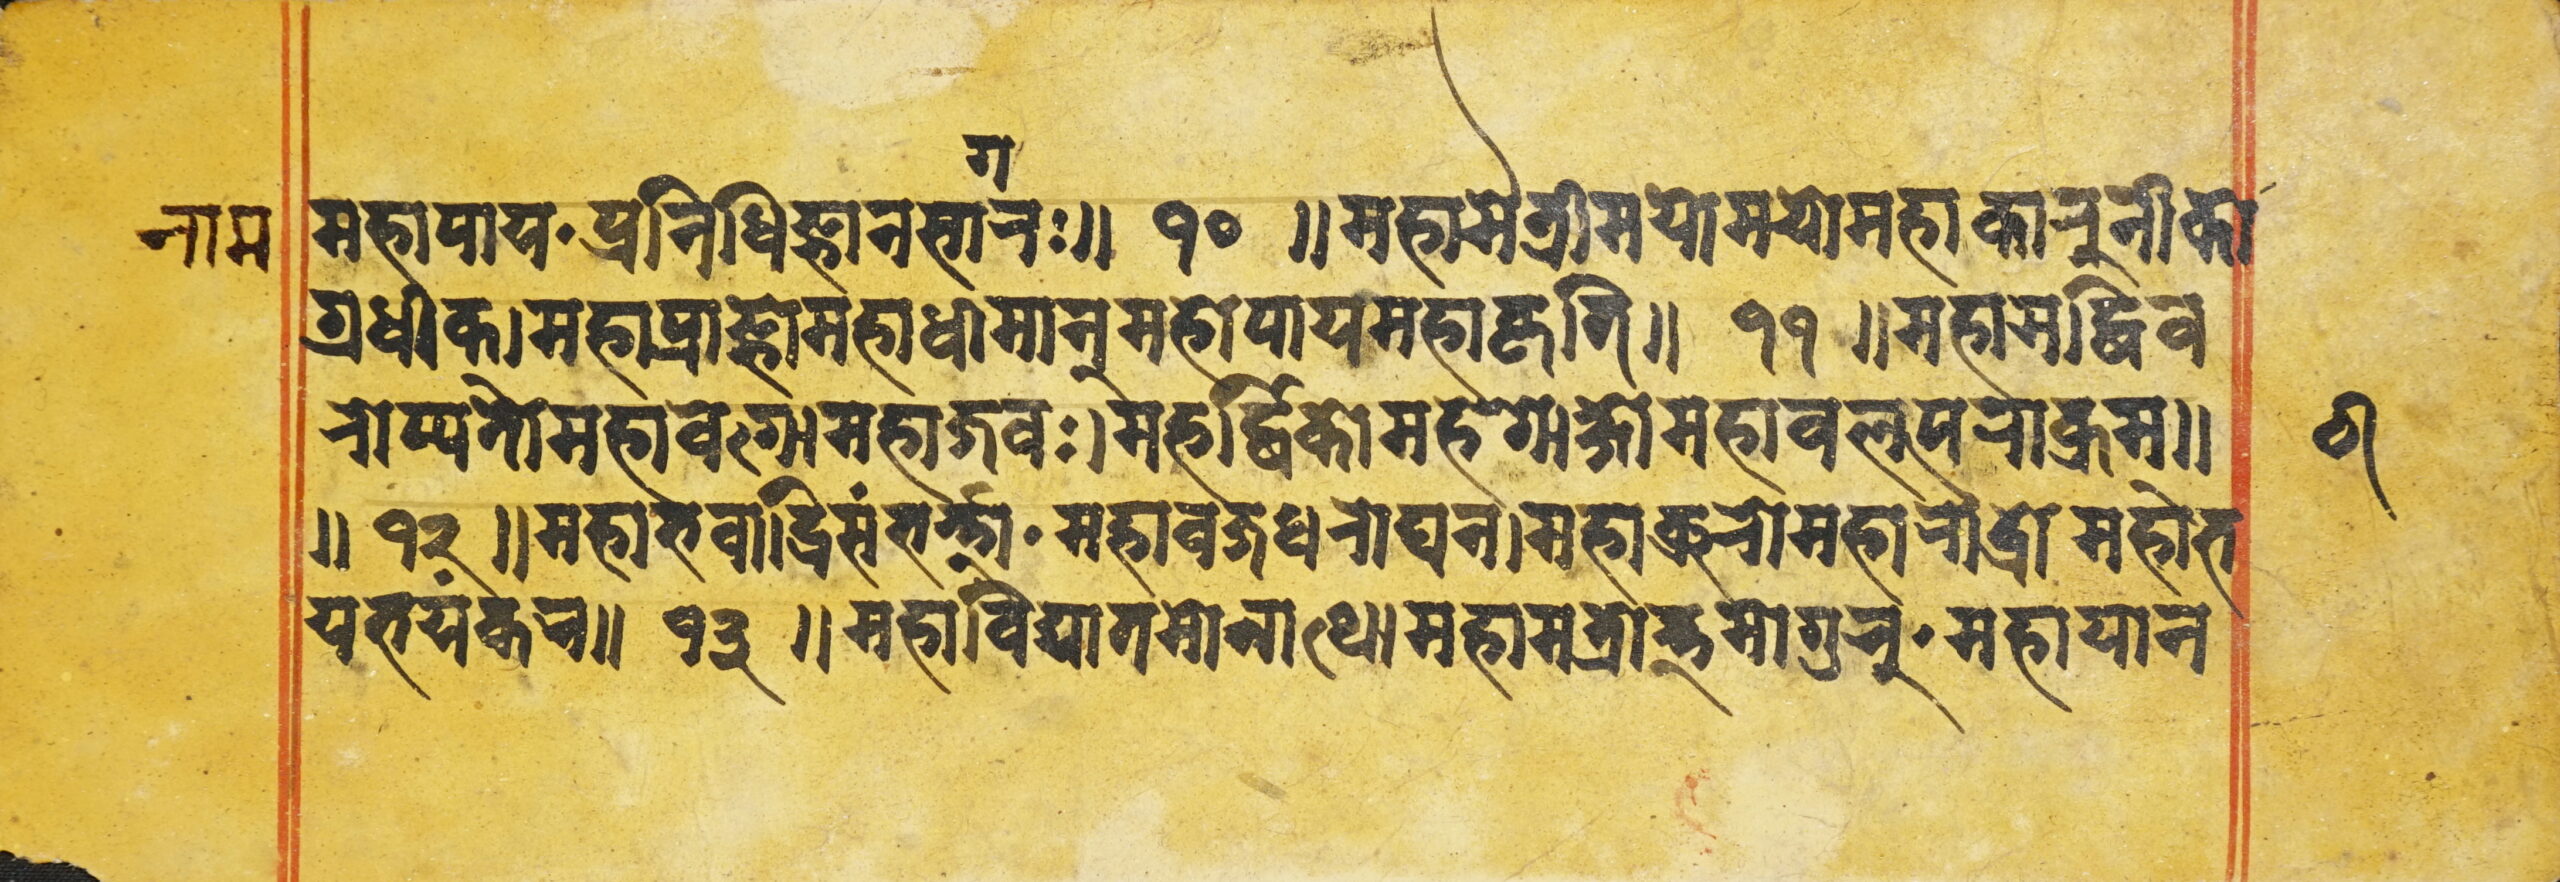 ग
नाम महापाय॰प्रनिधिज्ञानसानरः॥ १० ॥महामैत्रीमयोमयोमहाकारुनीको
ग्रधीक।महाप्राज्ञोमहाधीमान्महोपायमहाकृति॥ ११ ॥महामद्धिव
रोप्यतोमहावेगामहाजवः।महर्द्धिकोमहेशाक्षोमहाबलपराक्रम॥
॥ १२ ॥महाभवाद्रिसंभर्त्ता॰महावज्रधरोघन।महाक्रुरोमहारौद्रो महाभ
यभयंकर॥ १३ ॥महाविद्यातमोनाथोमहामत्रोत्तमोगुरु॰महायान